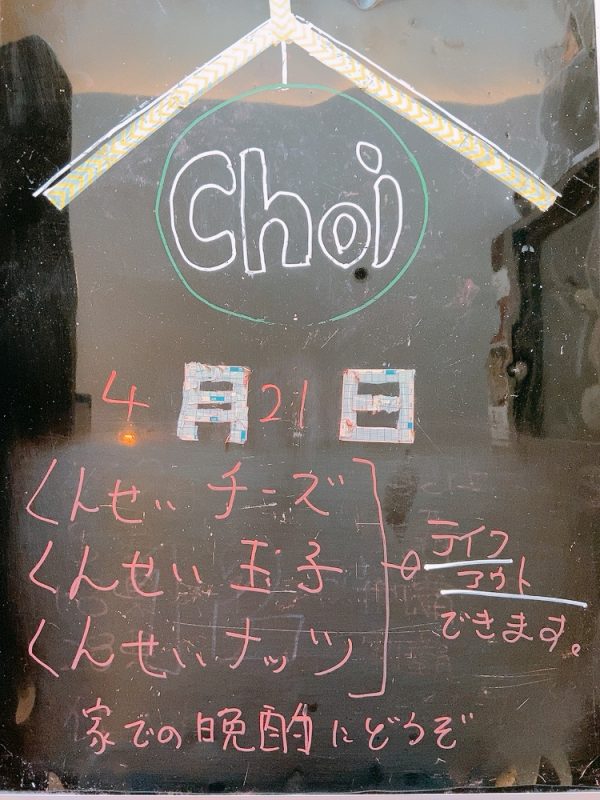 Choi
4月21日
くんせいチーズ
くんせい玉子
くんせいナッツ
の テイク
アウト
できます。
家での晩酌にどうぞ